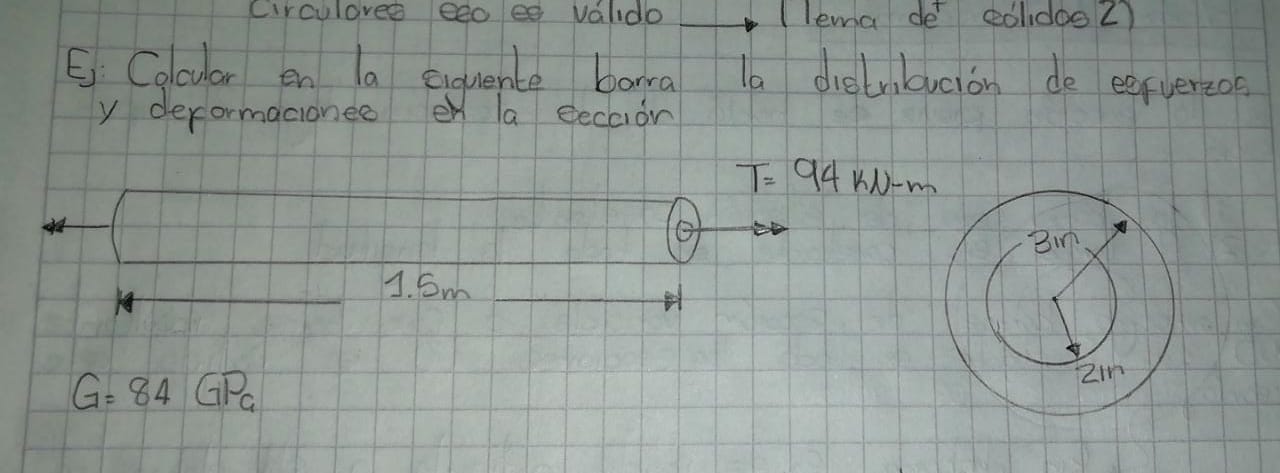 Circulares eso es válido → (Tema de sólidos 2)
Ej: Calcular en la siguiente barra la distribución de esfuerzos
y deformaciones en la sección
T= 94 KN-m
3in
1.5m
2in
G= 84 GPa